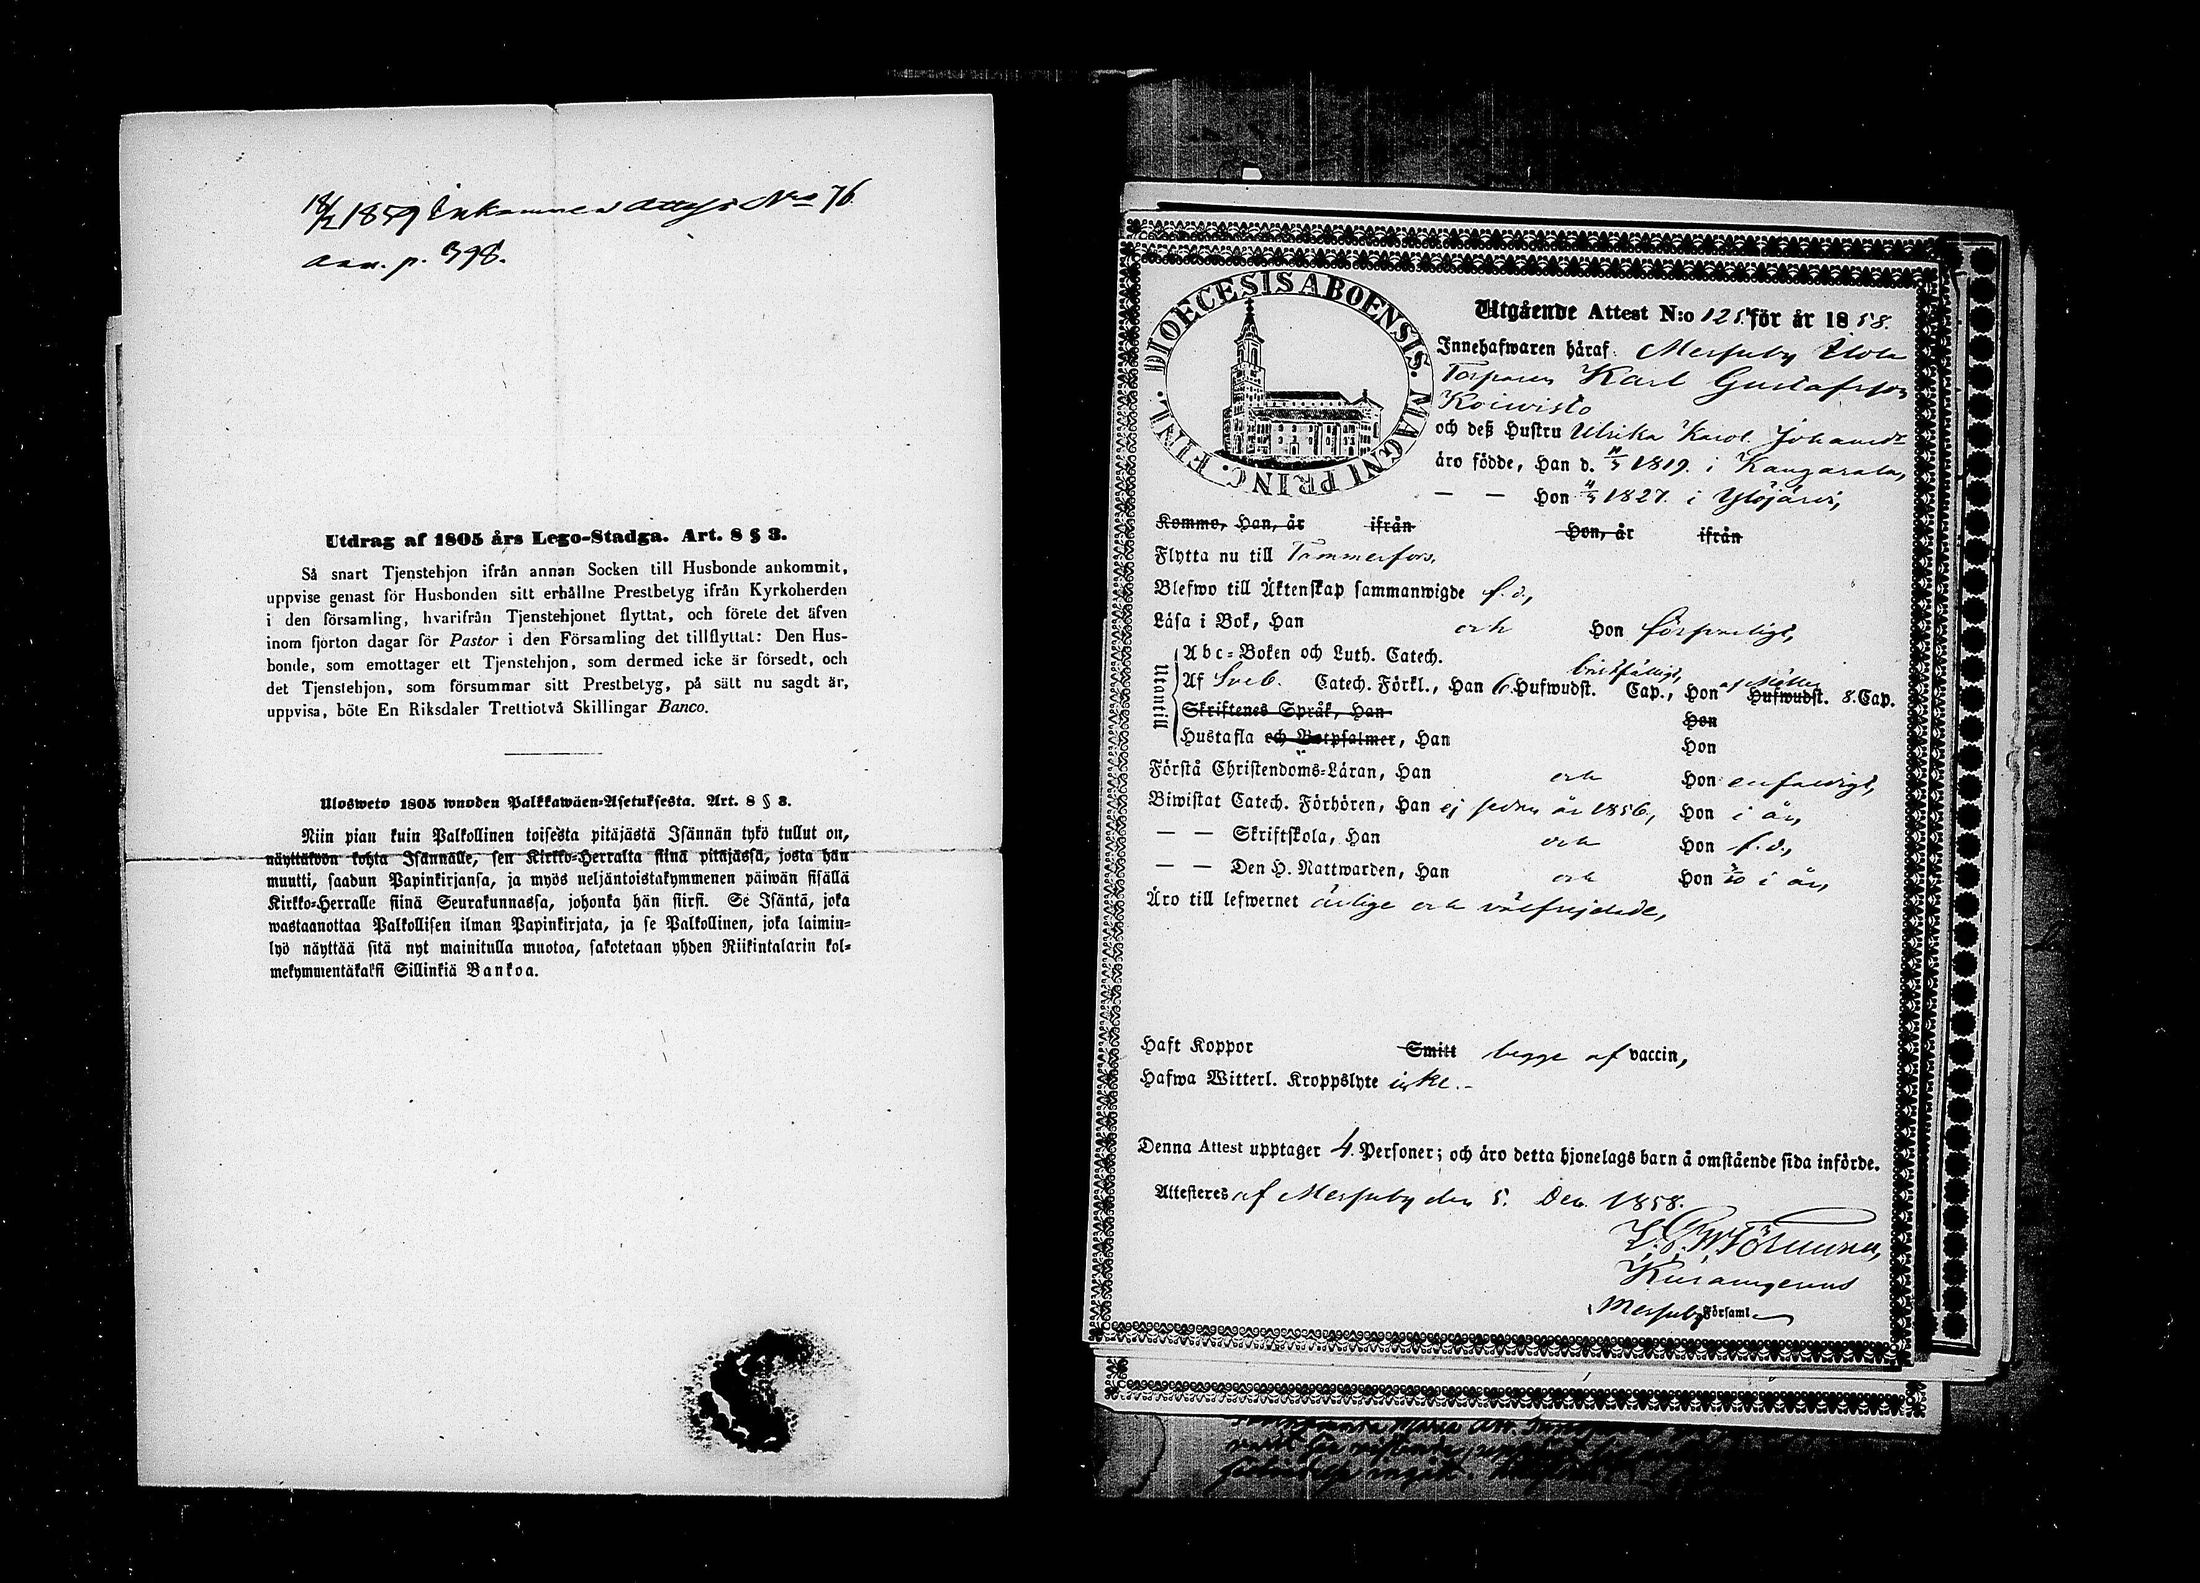 18/2 1859 Inkommen Attest No 76
Ann. p. 398.
Utdrag af 1805 års Lego-Stadga. Art. 8 § 3.
Så snart Tjenstehjon ifrån annan Socken till Husbonde ankommit,
uppvise genast för Husbonden sitt erhållne Prestbetyg ifrån Kyrkoherden
i den församling, hvarifrån Tjenstehjonet flyttat, och förete det äfven
inom fjorton dagar för Pastor i den Församling det tillflyttat: Den Hus-
bonde, som emottager ett Tjenstehjon, som dermed icke är försedt, och
det Tjenstehjon, som försummar sitt Prestbetyg, på sätt nu sagdt är,
uppvisa, böte En Riksdaler Trettiotvå Skillingar Banco.
Ulosweto 1805 wuoden Palkkawäen-Asetuksesta. Art. 8 § 3.
Niin pian kuin Palkollinen toisesta pitäjästä Isännän tykö tullut on,
näyttäköön kohta Isännälle, sen Kirkko-Herralta siinä pitäjässä, josta hän
muutti, saadun Papinkirjansa, ja myös neljäntoistakymmenen päiwän sisällä
Kirkko-Herralle siinä Seurakunnassa, johonka hän siirsi. Se Isäntä, joka
wastaanottaa Palkollisen ilman Papinkirjata, ja se Palkollinen, joka laimin-
lyö näyttää sitä nyt mainitulla muotoa, sakotetaan yhden Riikintalarin kol-
mekymmentäkaksi Sillinkiä Bankoa.
DIOECESIS ABOENSIS. MAGNI PRINC. FINL.
Utgående Attest N:o 125. för år 1858.
Innehafwaren häraf: Messuby Utola
Torparen Karl Gustafsson
Koiwisto
och deß Hustru Ulrika Karol. Johansdr
äro födde, Han d. 1819. i Kangasala,
— — Hon 1827. i Ylöjärvi,
Komme, Han, år ifrån Hon, år ifrån
Flytta nu till Tammerfors.
Blefwo till Äktenskap sammanwigde f. d.,
Läsa i Bok, Han och Hon försvarligt,
Abc-Boken och Luth. Catech.
Utantill
bristfälligt,
Af Sveb. Catech. Förkl., Han 6. Hufwudst. Cap., Hon Hufwudst. 8. Cap.
Skriftenes Språk, Han Hon
Hustafla och Botpsalmer, Han Hon
Förstå Christendoms-Läran, Han och Hon enfaldigt,
Biwistat Catech. Förhören, Han ej sedan år 1856, Hon i år,
— — Skriftskola, Han och Hon f. d.,
— — Den H. Nattwarden, Han och Hon 3/10 i år,
Äro till lefwernet ärlige och välfrejdade,
Haft Koppor Smitt begge af vaccin,
Hafwa Witterl. Kroppslyte icke.-
Denna Attest upptager 4. Personer; och äro detta hjonelags barn å omstående sida införde.
Attesteres af Messuby den 5. Dec. 1858.
Messuby Församl